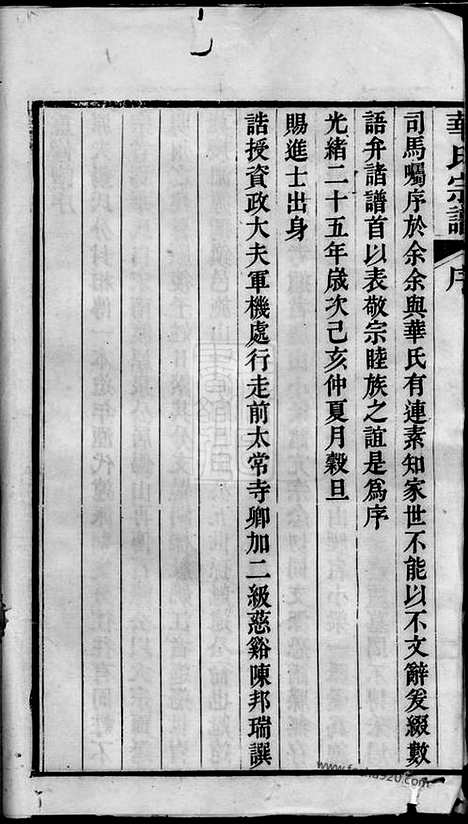 華氏宗譜
序
司馬囑序於余余與華氏有連素知家世不能以不文辭爰綴數
語弁諸譜首以表敬宗睦族之誼是為序
光緒二十五年歲次己亥仲夏月穀旦
賜進士出身
誥授資政大夫軍機處行走前太常寺卿加二級慈谿陳邦瑞譔